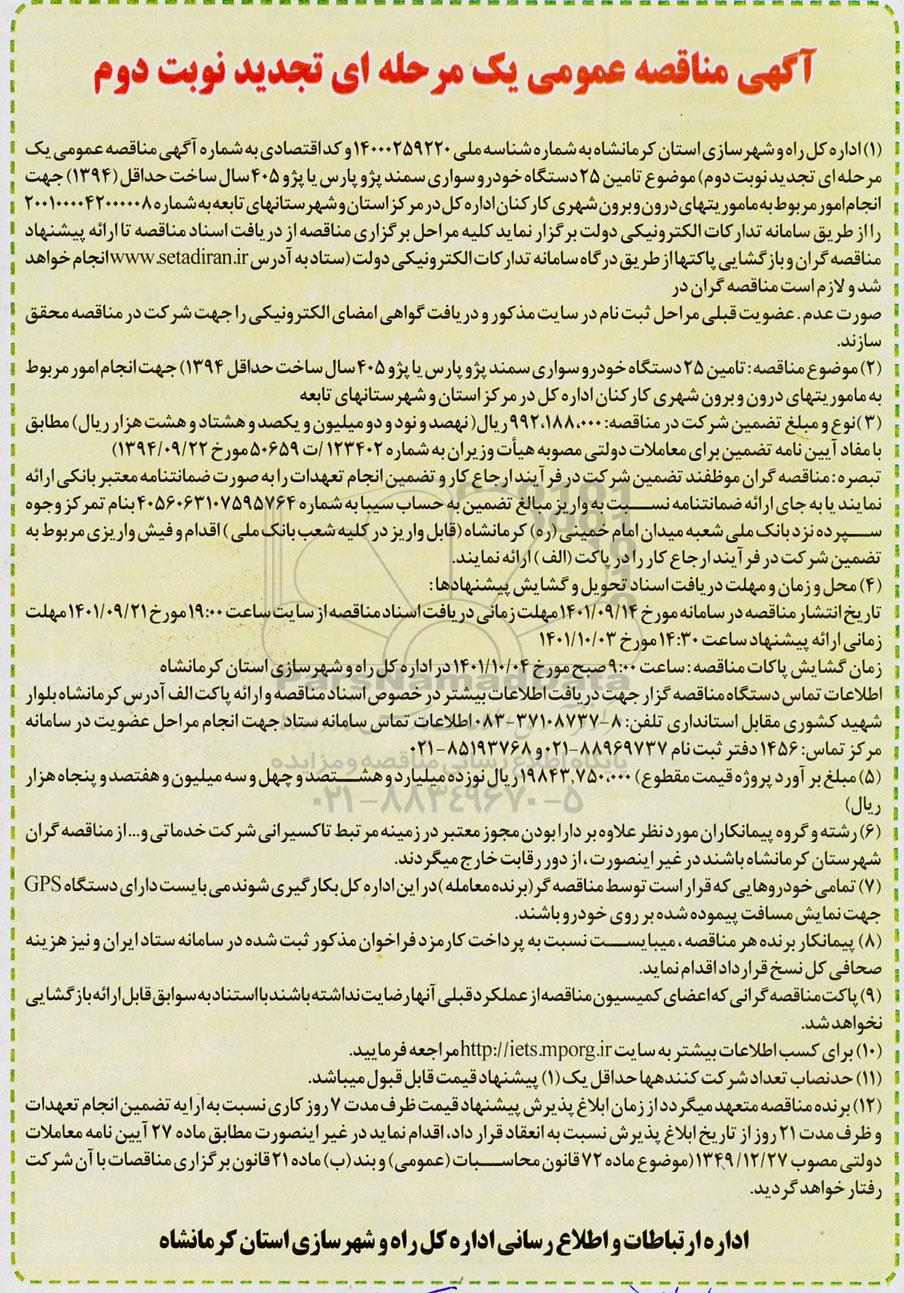 آگهی مناقصه عمومی یک مرحله ای تجدید نوبت دوم
(۱) اداره کل راه و شهرسازی استان کرمانشاه به شماره شناسه ملی ۱۴۰۰۰۲۵۹۲۲۰ و کد اقتصادی به شماره آگهی مناقصه عمومی یک
مرحله ای تجدید نوبت دوم) موضوع تامین ۲۵ دستگاه خودرو سواری سمند پژو پارس یا پژو ۴۰۵ سال ساخت حداقل (۱۳۹۴) جهت
انجام امور مربوط به ماموریتهای درون و برون شهری کارکنان اداره کل در مرکز استان و شهرستانهای تابعه به شماره ۲۰۰۱۰۰۰۰۴۲۰۰۰۰۰۸
را از طریق سامانه تدارکات الکترونیکی دولت برگزار نماید کلیه مراحل برگزاری مناقصه از دریافت اسناد مناقصه تا ارائه پیشنهاد
مناقصه گران و بازگشایی پاکتها از طریق درگاه سامانه تدارکات الکترونیکی دولت (ستاد به آدرس www.setadiran.ir انجام خواهد
شد و لازم است مناقصه گران در
صورت عدم . عضویت قبلی مراحل ثبت نام در سایت مذکور و دریافت گواهی امضای الکترونیکی را جهت شرکت در مناقصه محقق
سازند.
(۲) موضوع مناقصه : تامین ۲۵ دستگاه خودرو سواری سمند پژو پارس یا پژو ۴۰۵ سال ساخت حداقل ۱۳۹۴) جهت انجام امور مربوط
به ماموریتهای درون و برون شهری کارکنان اداره کل در مرکز استان و شهرستانهای تابعه
(۳) نوع و مبلغ تضمین شرکت در مناقصه: ۹۹۲،۱۸۸،۰۰۰ ریال( نهصد و نود و دو میلیون و یکصد و هشتاد و هشت هزار ریال) مطابق
با مفاد آیین نامه تضمین برای معاملات دولتی مصوبه هیأت وزیران به شماره ۱۲۳۴۰۲ /ت ۵۰۶۵۹ مورخ ۱۳۹۴/۰۹/۲۲)
تبصره : مناقصه گران موظفند تضمین شرکت در فرآیند ارجاع کار و تضمین انجام تعهدات را به صورت ضمانتنامه معتبر بانکی ارائه
نمایند یا به جای ارائه ضمانتنامه نسبت به واریز مبالغ تضمین به حساب سیبا به شماره ۴۰۵۶۰۶۳۱۰۷۵۹۵۷۶۴ بنام تمرکز وجوه
سپرده نزد بانک ملی شعبه میدان امام خمینی (ره) کرمانشاه (قابل واریز در کلیه شعب بانک ملی ) اقدام و فیش واریزی مربوط به
تضمین شرکت در فرآیند ارجاع کار را در پاکت (الف) ارائه نمایند.
(۴) محل و زمان و مهلت دریافت اسناد تحویل و گشایش پیشنهادها:
تاریخ انتشار مناقصه در سامانه مورخ ۱۴۰۱/۰۹/۱۴ مهلت زمانی دریافت اسناد مناقصه از سایت ساعت ۱۹:۰۰ مورخ ۱۴۰۱/۰۹/۲۱ مهلت
زمانی ارائه پیشنهاد ساعت ۱۴:۳۰ مورخ ۱۴۰۱/۱۰/۰۳
زمان گشایش پاکات مناقصه : ساعت ۹:۰۰ صبح مورخ ۱۴۰۱/۱۰/۰۴ در اداره کل راه و شهرسازی استان کرمانشاه
اطلاعات تماس دستگاه مناقصه گزار جهت دریافت اطلاعات بیشتر در خصوص اسناد مناقصه و ارائه پاکت الف آدرس کرمانشاه بلوار
شهید کشوری مقابل استانداری تلفن: ۸-۳۷۱۰۸۷۳۷-۰۸۳ اطلاعات تماس سامانه ستاد جهت انجام مراحل عضویت در سامانه
مرکز تماس: ۱۴۵۶ دفتر ثبت نام ۸۸۹۶۹۷۳۷-۰۲۱ و ۸۵۱۹۳۷۶۸-۰۲۱
(۵) مبلغ برآورد پروژه قیمت مقطوع) ۱۹۸۴۳،۷۵۰،۰۰۰ ریال نوزده میلیارد و هشتصد و چهل و سه میلیون و هفتصد و پنجاه هزار
ریال)
(۶) رشته و گروه پیمانکاران مورد نظر علاوه بر دارا بودن مجوز معتبر در زمینه مرتبط تاکسیرانی شرکت خدماتی و... از مناقصه گران
شهرستان کرمانشاه باشند در غیر اینصورت ، از دور رقابت خارج میگردند.
(۷) تمامی خودروهایی که قرار است توسط مناقصه گر (برنده معامله )در این اداره کل بکارگیری شوند می بایست دارای دستگاه GPS
جهت نمایش مسافت پیموده شده بر روی خودرو باشند.
(۸) پیمانکار برنده هر مناقصه ، میبایست نسبت به پرداخت کارمزد فراخوان مذکور ثبت شده در سامانه ستاد ایران و نیز هزینه
صحافی کل نسخ قرارداد اقدام نماید.
(۹) پاکت مناقصه گرانی که اعضای کمیسیون مناقصه از عملکرد قبلی آنها رضایت نداشته باشند با استناد به سوابق قابل ارائه بازگشایی
نخواهد شد.
(۱۰) برای کسب اطلاعات بیشتر به سایت http://iets.mporg.ir مراجعه فرمایید.
(۱۱) حدنصاب تعداد شرکت کنندهها حداقل یک (۱) پیشنهاد قیمت قابل قبول میباشد.
(۱۲) برنده مناقصه متعهد میگردد از زمان ابلاغ پذیرش پیشنهاد قیمت ظرف مدت ۷ روز کاری نسبت به ارایه تضمین انجام تعهدات
و ظرف مدت ۲۱ روز از تاریخ ابلاغ پذیرش نسبت به انعقاد قرار داد، اقدام نماید در غیر اینصورت مطابق ماده ۲۷ آیین نامه معاملات
دولتی مصوب ۱۳۴۹/۱۲/۲۷ (موضوع ماده ۷۲ قانون محاسبات (عمومی) و بند (ب) ماده ۲۱ قانون برگزاری مناقصات با آن شرکت
رفتار خواهد گردید.
اداره ارتباطات و اطلاع رسانی اداره کل راه و شهرسازی استان کرمانشاه
ParsNamadData
پایگاه اطلاع رسانی مناقصه و مزایده
۰۲۱-۸۸۳۴۹۶۷۰-۵